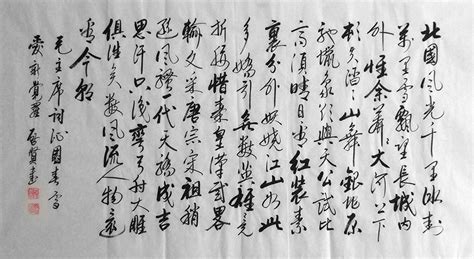 北國風光千里冰封
萬里雪飄望長城內
外惟余莽莽大河上下
頓失滔滔山舞銀蛇原
馳蠟象欲與天公試比
高須晴日看紅裝素
裹分外妖嬈江山如此
多嬌引無數英雄竞
折腰惜秦皇漢武略
輸文采唐宗宋祖稍
遜風騷一代天驕成吉
思汗只識彎弓射大雕
俱往矣數風流人物還
看今朝
毛主席詞沁園春雪
愛新覺羅 書